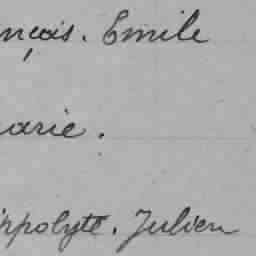 nçois. Emile
arie.
ippolyte. Julien